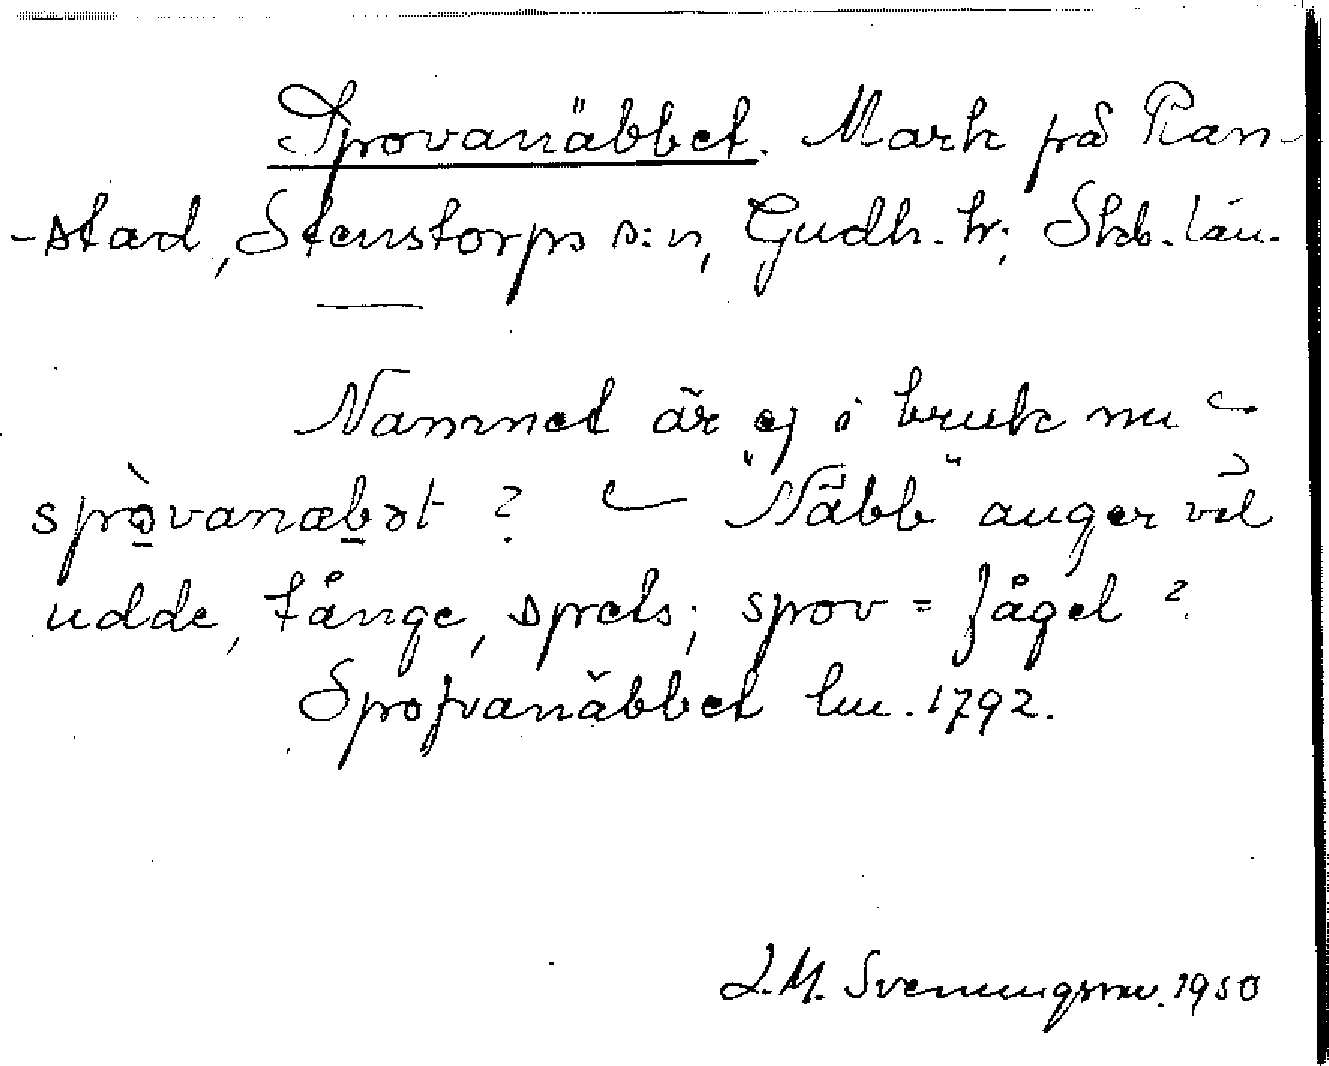 Sprovanäbbet. Mark på Ran-
-stad, Stenstorps s:n, Gudh. hr; Skb. län.
Namnet är ej i bruk nu –
spròvanæbət ? – "Näbb" anger väl
udde, tånge, spets; spov = fågel ?
Sprofvanäbbet lm. 1792.
J.M. Svenungsson. 1950